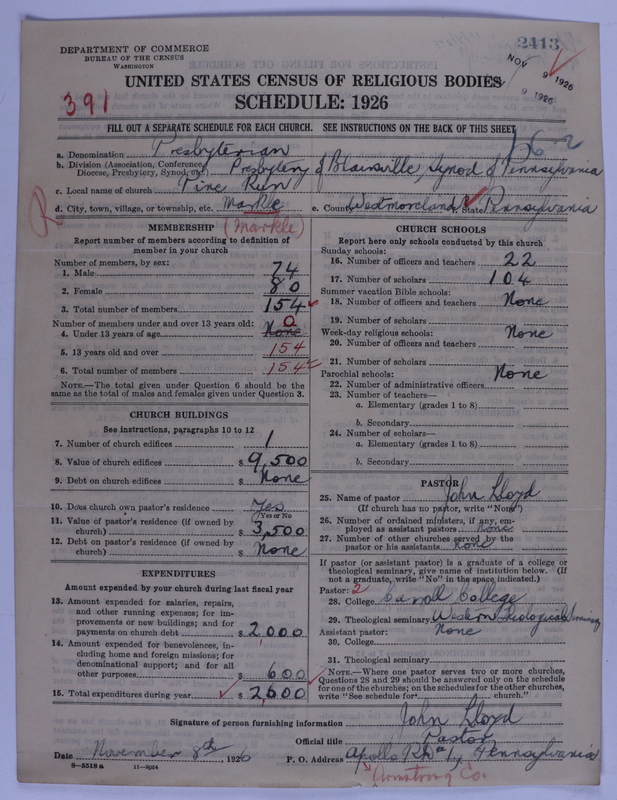 2413
DEPARTMENT OF COMMERCE
BUREAU OF THE CENSUS
WASHINGTON
NOV 9 1926
9 1926
UNITED STATES CENSUS OF RELIGIOUS BODIES
391
SCHEDULE: 1926
FILL OUT A SEPARATE SCHEDULE FOR EACH CHURCH. SEE INSTRUCTIONS ON THE BACK OF THIS SHEET
a. Denomination Presbyterian
b. Division (Association, Conference, Diocese, Presbytery, Synod, etc.) Presbytery of Blairsville, Synod of Pennsylvania
c. Local name of church Pine Run
d. City, town, village, or township, etc. Markle e. County Westmoreland f. State Pennsylvania
R
(Markle)
MEMBERSHIP
Report number of members according to definition of
member in your church
Number of members, by sex:
1. Male 74
2. Female 80
3. Total number of members 154
Number of members under and over 13 years old:
4. Under 13 years of age None 0
5. 13 years old and over 154
6. Total number of members 154
NOTE.—The total given under Question 6 should be the
same as the total of males and females given under Question 3.
CHURCH BUILDINGS
See instructions, paragraphs 10 to 12
7. Number of church edifices 1
8. Value of church edifices $ 9,500
9. Debt on church edifices $ None
10. Does church own pastor's residence Yes
(Yes or No)
11. Value of pastor's residence (if owned by
church) $ 3,500
12. Debt on pastor's residence (if owned by
church) $ None
EXPENDITURES
Amount expended by your church during last fiscal year
13. Amount expended for salaries, repairs,
and other running expenses; for im-
provements or new buildings; and for
payments on church debt $ 2,000
14. Amount expended for benevolences, in-
cluding home and foreign missions; for
denominational support; and for all
other purposes $ 600
15. Total expenditures during year $ 2,600
CHURCH SCHOOLS
Report here only schools conducted by this church
Sunday schools:
16. Number of officers and teachers 22
17. Number of scholars 104
Summer vacation Bible schools:
18. Number of officers and teachers None
19. Number of scholars
Week-day religious schools:
20. Number of officers and teachers None
21. Number of scholars
Parochial schools:
22. Number of administrative officers None
23. Number of teachers—
a. Elementary (grades 1 to 8)
b. Secondary
24. Number of scholars—
a. Elementary (grades 1 to 8)
b. Secondary
PASTOR
25. Name of pastor John Lloyd
(If church has no pastor, write "None")
26. Number of ordained ministers, if any, em-
ployed as assistant pastors None
27. Number of other churches served by the
pastor or his assistants None
If pastor (or assistant pastor) is a graduate of a college or
theological seminary, give name of institution below. (If
not a graduate, write "No" in the space indicated.)
Pastor: 2
28. College Carroll College
29. Theological seminary Western Theological Seminary
Assistant pastor: None
30. College
31. Theological seminary
NOTE.—Where one pastor serves two or more churches,
Questions 28 and 29 should be answered only on the schedule
for one of the churches; on the schedules for the other churches,
write "See schedule for church."
Signature of person furnishing information John Lloyd
Official title Pastor
Date November 8th, 1926 P. O. Address Apollo R.D. #1, Pennsylvania
8—5518 a 11—9924
Armstrong Co.